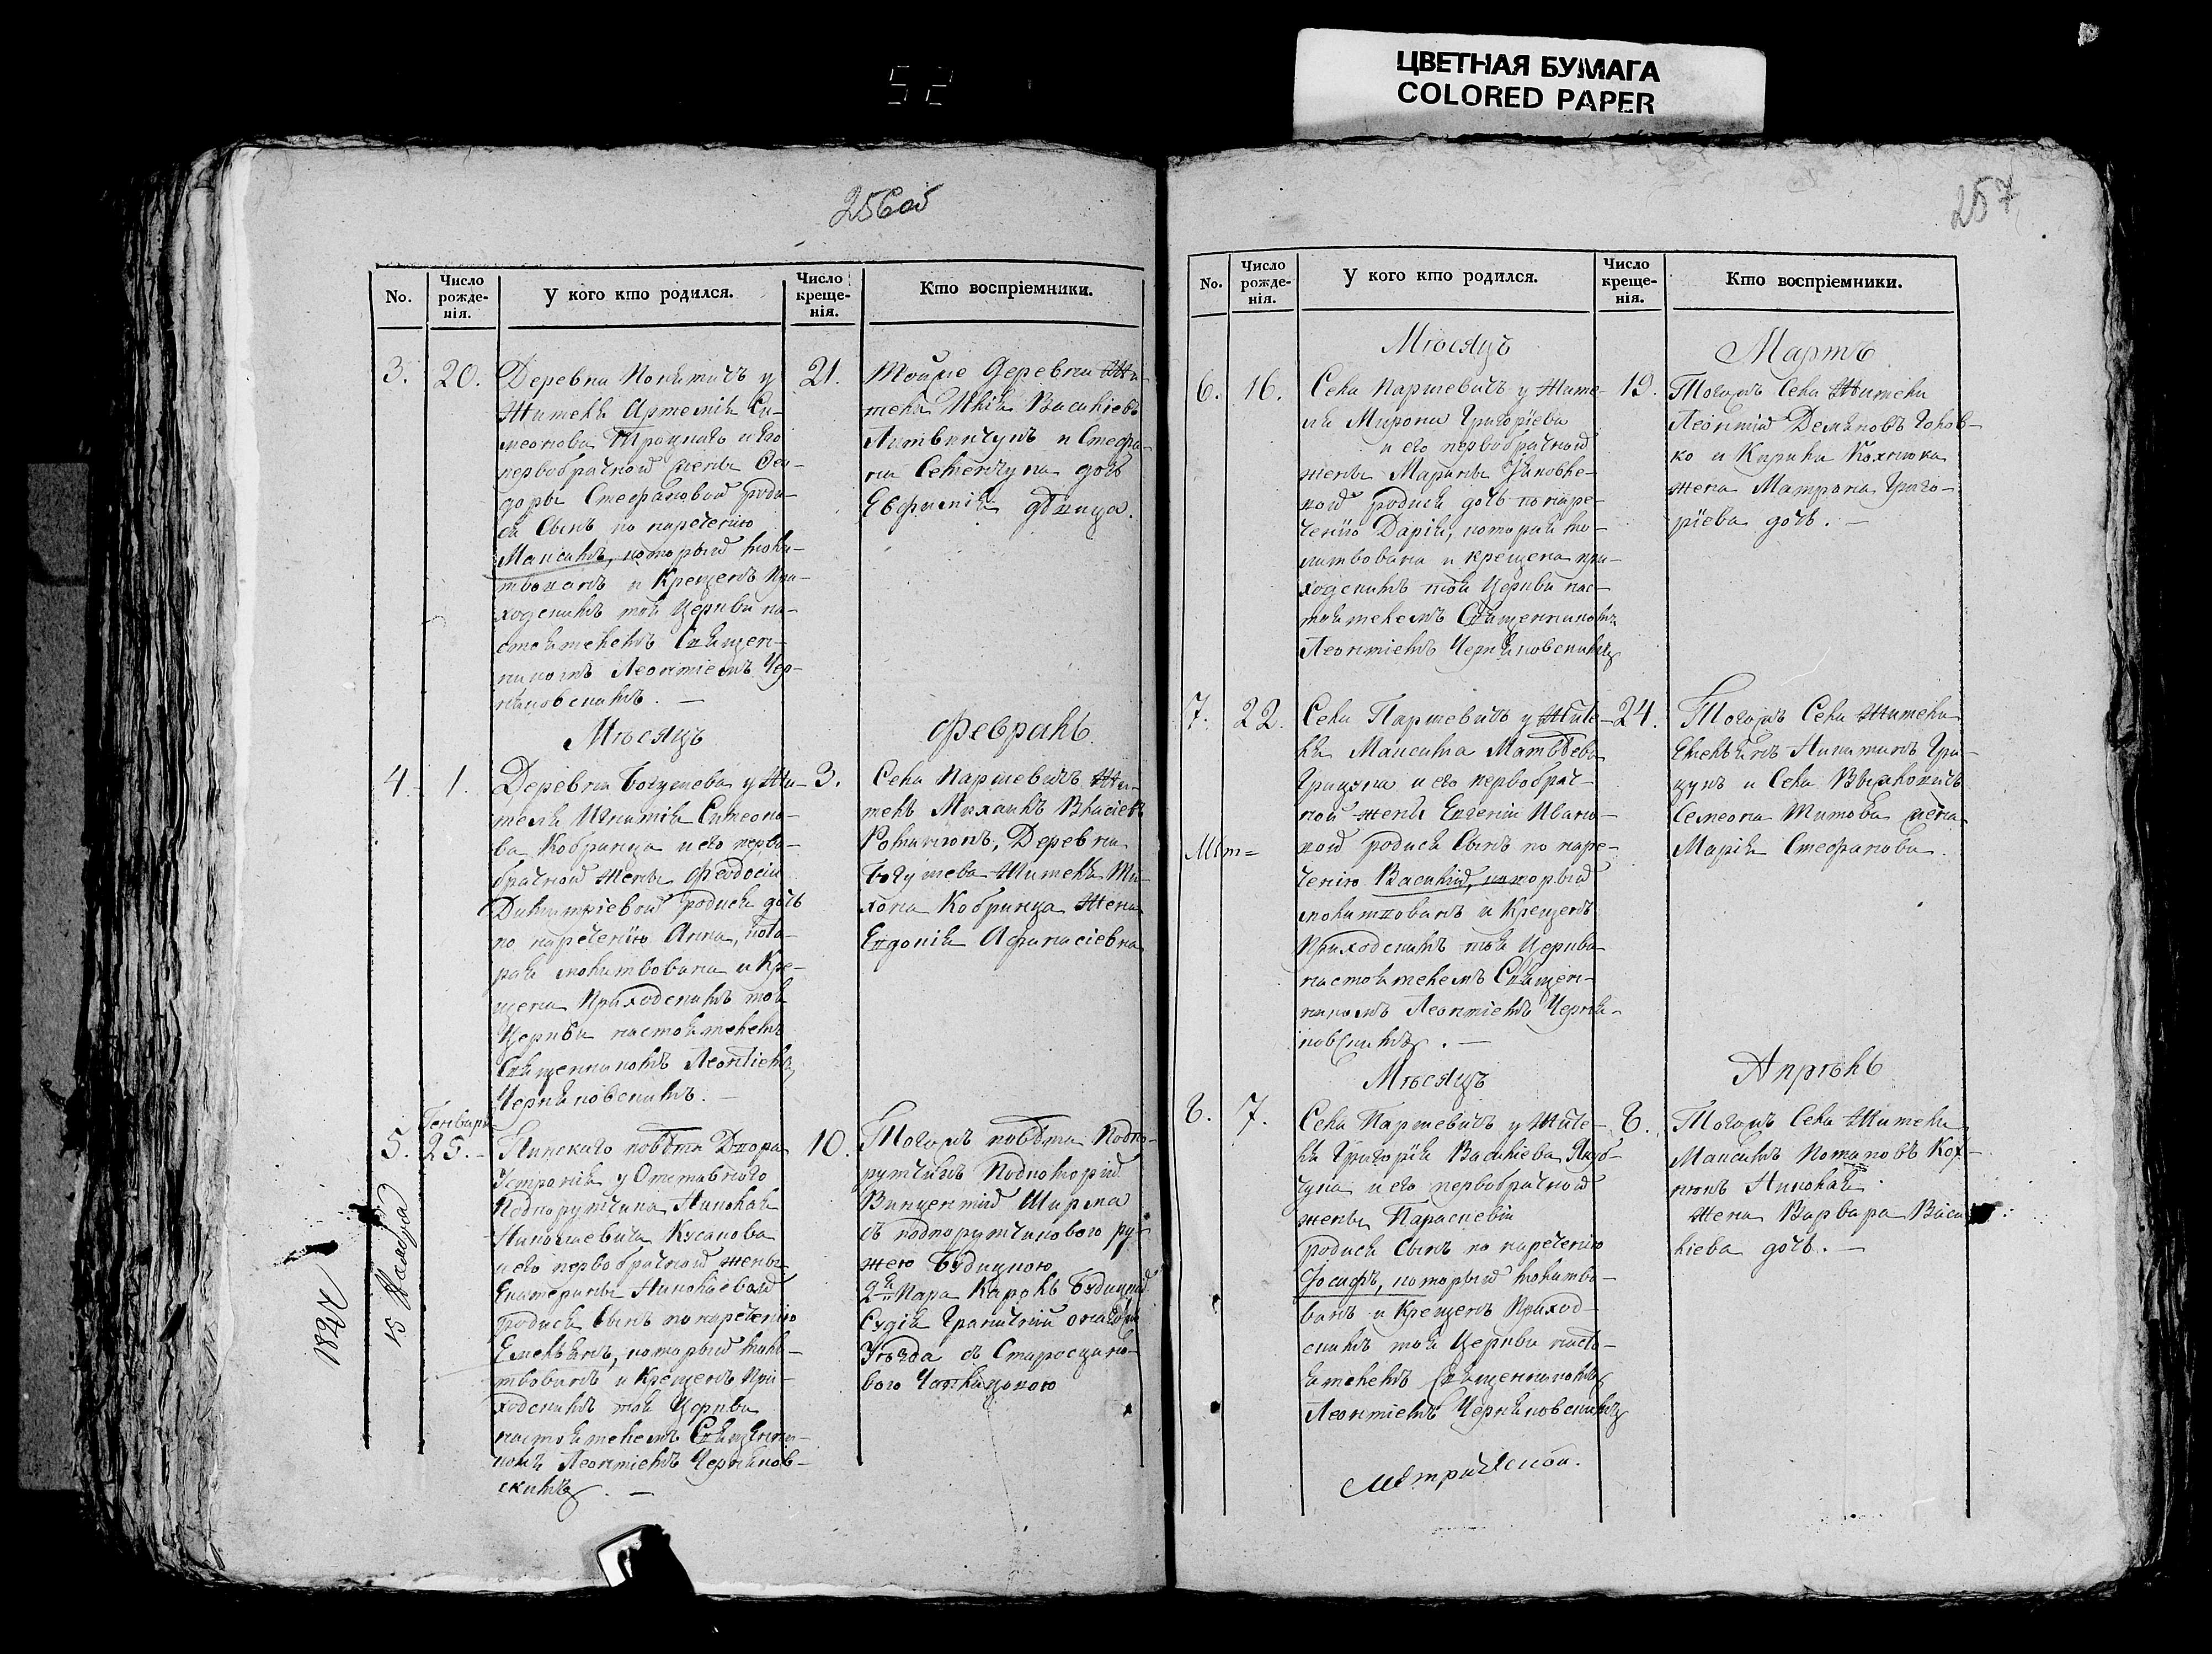 52
ЦВЕТНАЯ БУМАГА
COLORED PAPER
256об
No.
Число рожде-нія.
У кого кто родился.
Число креще-нія.
Кто воспріемники.
3. 20.
Деревни у
Жителя Артемія Си-
меонова Троцкаго и его
первобрачной жены
Стефановой роди-
ся сынъ по наречению
Максимъ, который моли-
твованъ и крещенъ при-
ходскимъ тоя церкви на-
стоятелемъ Священ-
никомъ Леонтіемъ Чер-
няковскимъ. —
21.
Тойже деревни Жи-
теля Илія Василіевъ
Литвинчукъ и Стефа-
на Семенчука дочь
Евфимія дѣвица.
Мѣсяцъ
Февраль
4. 1.
Деревни Богушева у Жи-
теля Игнатія Симеоно-
ва Кобринца и его перво-
брачной жены Феодосіи
Димитріевой родися дочь
по наречению Анна, кото-
рая молитвована и кре-
щена приходскимъ тоя
Церкви настоятелемъ
Священникомъ Леонтіемъ
Черняковскимъ. —
3.
Села Паршевичъ Жи-
тель Михаилъ Власіевъ
Романюкъ, Деревни
Богушева Жителя Ти-
хона Кобринца Жена
Евдокія Афанасіевна
Генваря
5. 25.
Пинскаго повѣта Двора
у Отставного
Подпоручика Николая
Николаевича Кусакова
и его первобрачной жены
Екатерины Николаевой
родися сынъ по наречению
Емельянъ, который моли-
твованъ и крещенъ при-
ходскимъ тоя Церкви
настоятелемъ Священни-
комъ Леонтіемъ Черняков-
скимъ. —
10.
Тогожъ повѣта Подпо-
ручикъ
Винцентій Ширма
съ подпоручиковою
2я Пара Кароль
Судія Граничній
Уѣзда съ
вого
1847
15 Ноября
257
No.
Число рожде-нія.
У кого кто родился.
Число креще-нія.
Кто воспріемники.
Мѣсяцъ
Мартъ
6. 16.
Села Паршевичъ у Жите-
ля Мирона Григоріева
и его первобрачной
жены Марины Яковле-
вой родися дочь по наре-
ченію Дарія, которая мо-
литвована и крещена при-
ходскимъ тоя Церкви нас-
тоятелемъ Священникомъ
Леонтіемъ Черняковскимъ
19.
Тогожъ Села Жители
Леонтій Демяновъ Голов-
ко и Кирила
жена Матрона Григо-
ріева дочь. —
7. 22.
Села Паршевичъ у Жите-
ля Максима Матвѣева
Грицука и его первобрач-
ной жены Евгеніи Ивано-
вой родися сынъ по наре-
ченію Василій, который
молитвованъ и крещенъ
Приходскимъ тоя Церкви
настоятелемъ Священ-
никомъ Леонтіемъ Черня-
ковскимъ. —
24.
Тогожъ Села Жители
Емельянъ Никитинъ Гри-
цукъ и Села
Семеона Титова жена
Марія Стефанова.
Мет=
Мѣсяцъ
Апрѣль
8. 7.
Села Паршевичъ у Жите-
ля Григорія Василіева
и его первобрачной
жены Параскевіи
родися сынъ по наречению
Іосифъ, который молитво-
ванъ и крещенъ Приход-
скимъ тоя Церкви насто-
ятелемъ Священникомъ
Леонтіемъ Черняковскимъ
8.
Тогожъ Села Жители
Максимъ Потаповъ Кох-
нюкъ Николая
жена Варвара Васи-
ліева дочь. —
Метрической.